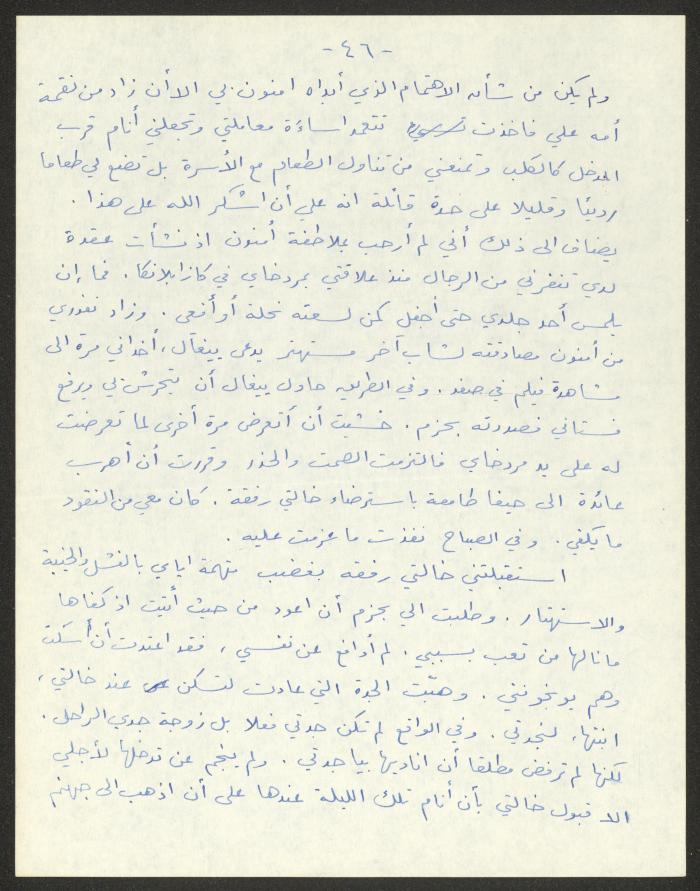 -٤٦-
ولم يكن من شأن الاهتمام الذي أبداه امنون بي الا أن زاد من نقمة
أمه علي فاخذت تتعمد اساءة معاملتي وتجعلني أنام قرب
المدخل كالكلب وتمنعني من تناول الطعام مع الأسرة بل تضع لي طعاما
رديئا وقليلا على حدة قائلة انه علي أن اشكر الله على هذا .
يضاف الى ذلك أني لم أرحب بملاطفة أمنون اذ نشأت عقدة
لدي تنفرني من الرجال منذ علاقتي بمردخاي في كازابلانكا . فما إن
يلمس أحد جلدي حتى أجفل كمن لسعته نحلة أو أفعى . وزاد نفوري
من أمنون مصادقته لشاب آخر مستهتر يدعى ييغآل ، أخذاني مرة الى
مشاهدة فيلم في صفد . وفي الطريق حاول ييغال أن يتحرش بي ويرفع
فستاني فصددته بحزم . خشيت أن أتعرض مرة أخرى لما تعرضت
له على يد مردخاي فالتزمت الصمت والحذر وقررت أن أهرب
عائدة الى حيفا طامعة باسترضاء خالتي رفقة . كان معي من النقود
ما يكفي . وفي الصباح نفذت ما عزمت عليه .
استقبلتني خالتي رفقه بغضب متهمة اياي بالفشل والخيبة
والاستهتار . وطلبت الي بحزم أن اعود من حيث أتيت اذ كفاها
ما نالها من تعب بسببي . لم أدافع عن نفسي ، فقد اعتدت أن أسكت
وهم يوبخونني . وهبّت الجدة التي عادت لتسكن عند خالتي ،
ابنتها ، لنجدتي . وفي الواقع لم تكن جدتي فعلا بل زوجة جدي الراحل .
لكنها لم ترفض مطلقا أن اناديها بيا جدتي . ولم ينجم عن تدخلها لأجلي
الا قبول خالتي بأن أنام تلك الليلة عندها على أن اذهب الى جهنم